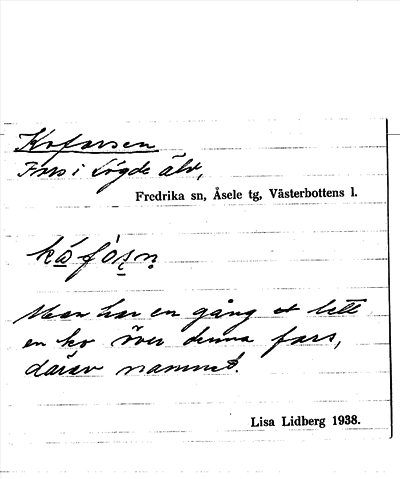 Koforsen
Fors i Lögde älv,
Fredrika sn, Åsele tg, Västerbottens l.
kófòṣṇ
Man har en gång lett
en ko över denna fors,
därav namnet.
Lisa Lidberg 1938.